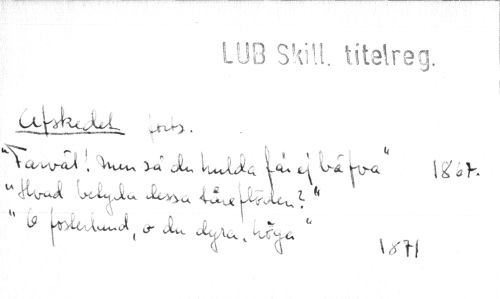 LUB Skill. titelreg.
Afskedet forts.
"Farväl! men så du hulda får ej bäfva" 1867.
"Hvad betyda dessa tåreflöden?"
"O fosterland, o du dyra, höga" 1871